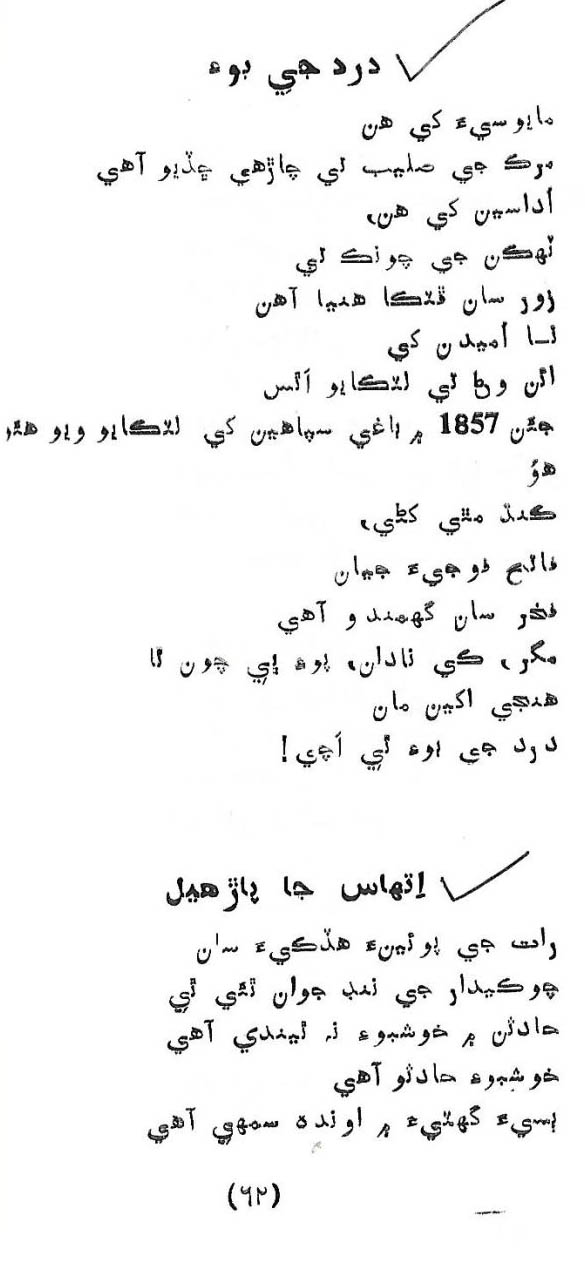 درد جي بوءِ
مايوسيءَ کي هن
مرڪ جي صليب تي چاڙهي ڇڏيو آهي
اُداسين کي هن،
ٽهڪن جي چونڪ تي
زور سان ڦٽڪا هنيا آهن
نـا اُميدن کي
اُن وڻ تي لٽڪايو اَٿس
جتن 1857 ۾ باغي سپاهين کي لٽڪايو ويو هئو
هؤ
ڪنڌ مٿي کڻي،
فاتح فوجيءَ جيان
فخر سان گهمندو آهي
مگر، ڪي نادان، پوءِ ٻي چون ٿا
هنجي اکين مان
درد جي بوءِ ٿي اَچي!
اِتهاس جا پاڙهيل
رات جي پوئينءَ هڏڪيءَ سان
چوڪيدار جي ننڊ جوان ٿئي ٿي
حادثن ۾ خوشبوءِ نہ ٿيندي آهي
خوشبوءِ حادثو آهي
ٻسيءَ گهٽيءَ ۾ اونده سمهي آهي
(٦٢)